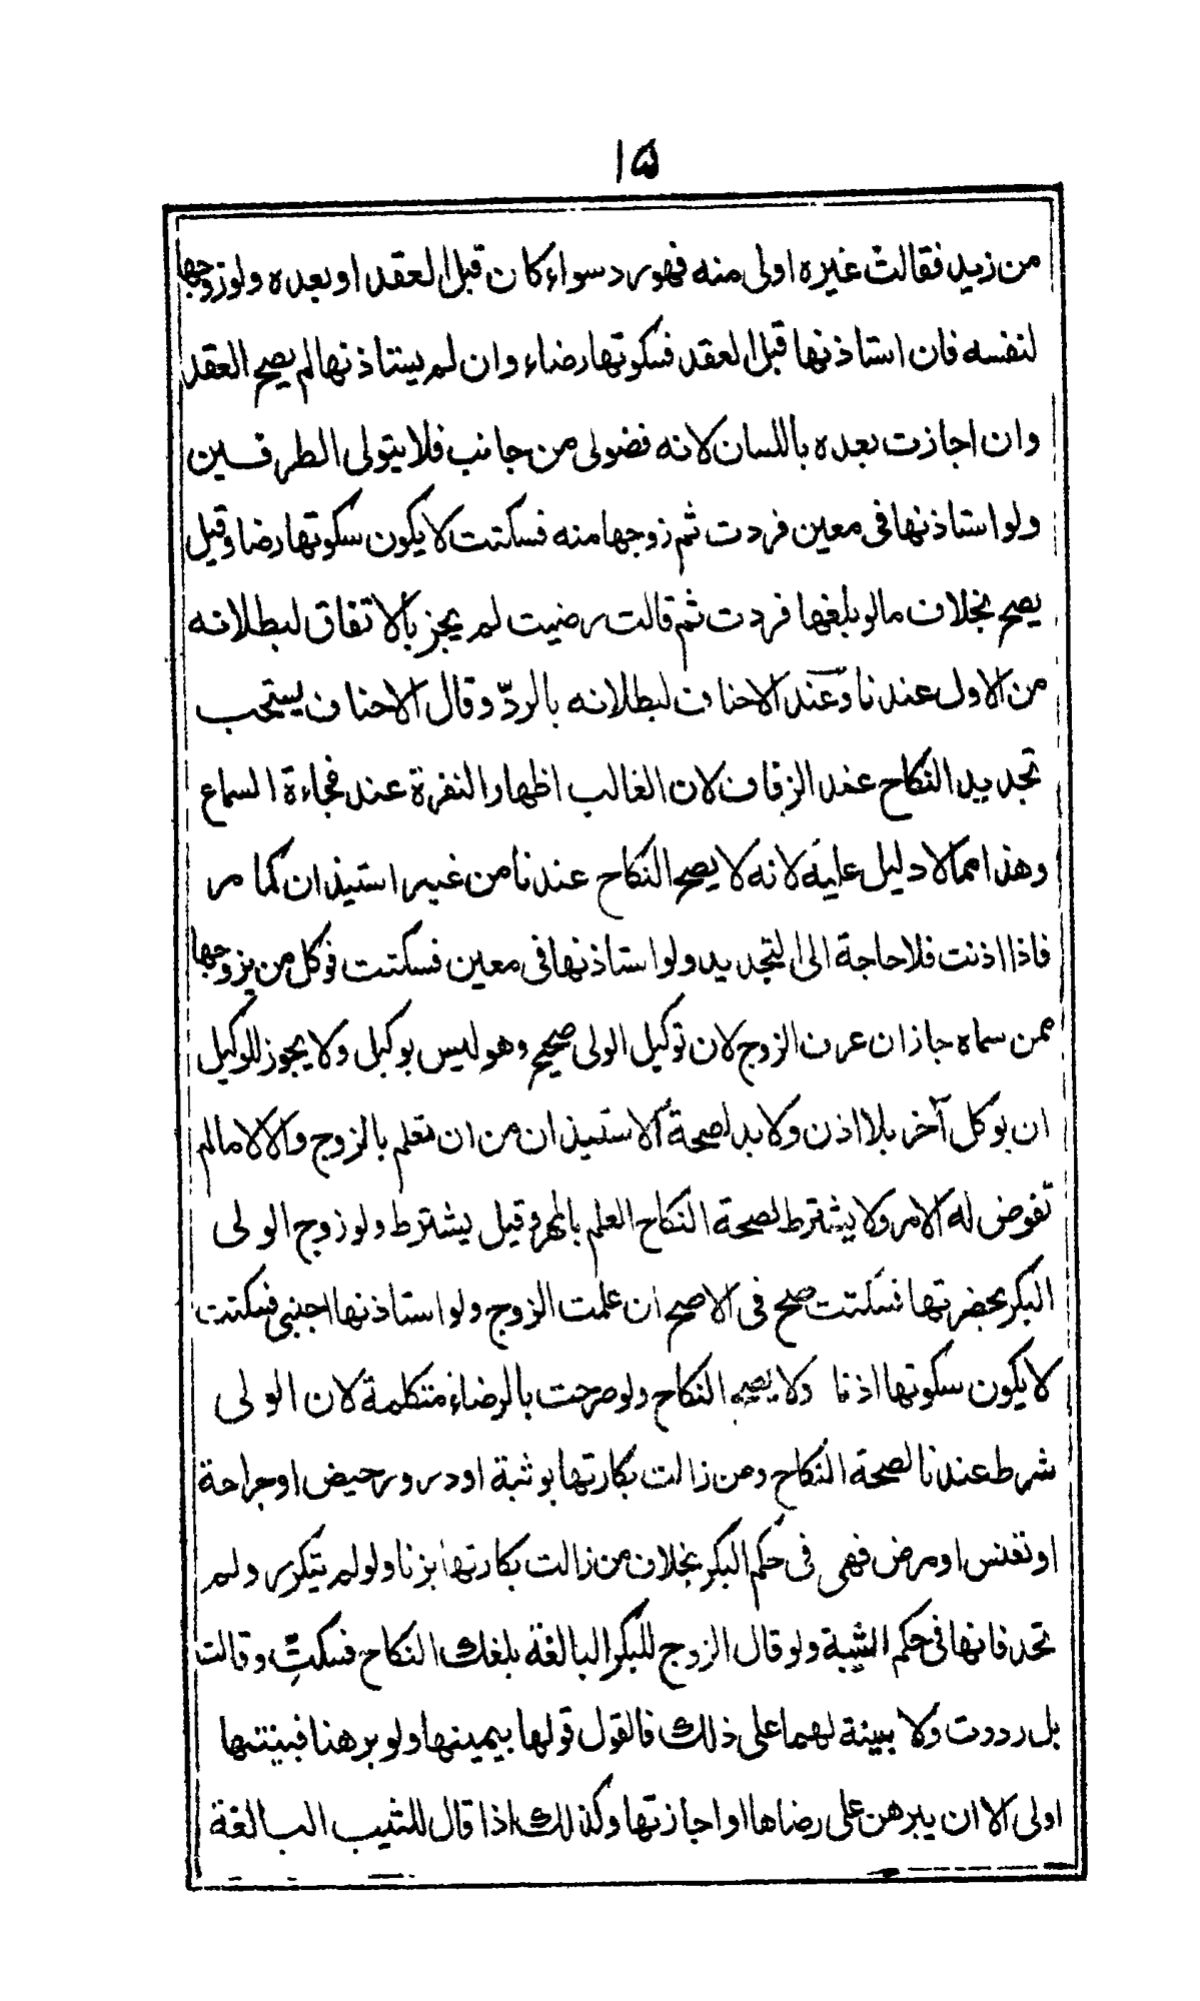 ١٥
من زيد فقالت غيره اولى منه فهو رد سواء كان قبل العقد او بعده ولو زوجها
لنفسه فان استاذنها قبل العقد فسكوتها رضاء وان لم يستاذنها لم يصح العقد
وان اجازت بعده باللسان لانه فضولى من جانب فلا يتولى الطرفين
ولو استاذنها فى معين فردت ثم زوجها منه فسكتت لا يكون سكوتها رضا وقيل
يصح بخلاف مالو بلغها فردت ثم قالت رضيت لم يجز بالاتفاق لبطلانه
من الاول عندنا وعند الاحناف لبطلانه بالردّ وقال الاحناف يستحب
تجديد النكاح عند الزفاف لان الغالب اظهار النفرة عند فجاءة السماع
وهذا مما لا دليل عليه لانه لا يصح النكاح عندنا من غير استيذان كما مر
فاذا اذنت فلا حاجة الى التجديد ولو استاذنها فى معين فسكتت فوكل من يزوجها
ممن سماه جاز ان عرف الزوج لان توكيل الولى صحيح وهو ليس بوكيل ولا يجوز للوكيل
ان يوكل آخر بلا اذن ولا بد لصحة الاستيذان من ان تعلم بالزوج والا لا مالم
تفوض له الامر ولا يشترط لصحة النكاح العلم بالمهر وقيل يشترط ولو زوج الولى
البكر بحضرتها فسكتت صح فى الاصح ان علمت الزوج ولو استاذنها اجنبى فسكتت
لا يكون سكوتها اذنا ولا يصح النكاح ولو صرحت بالرضاء متكلمة لان الولى
شرط عندنا لصحة النكاح ومن زالت بكارتها بوثبة او درور حيض او جراحة
او تعنس او مرض فهى فى حكم البكر بخلاف من زالت بكارتها بزنا ولو لم يتكرر ولم
تحد فانها فى حكم الثيبة ولو قال الزوج للبكر البالغة بلغك النكاح فسكتِّ وقالت
بل رددت ولا بينة لهما على ذلك فالقول قولها بيمينها ولو برهنا فبينتها
اولى الا ان يبرهن على رضاها او اجازتها وكذلك اذا قال للثيب البالغة